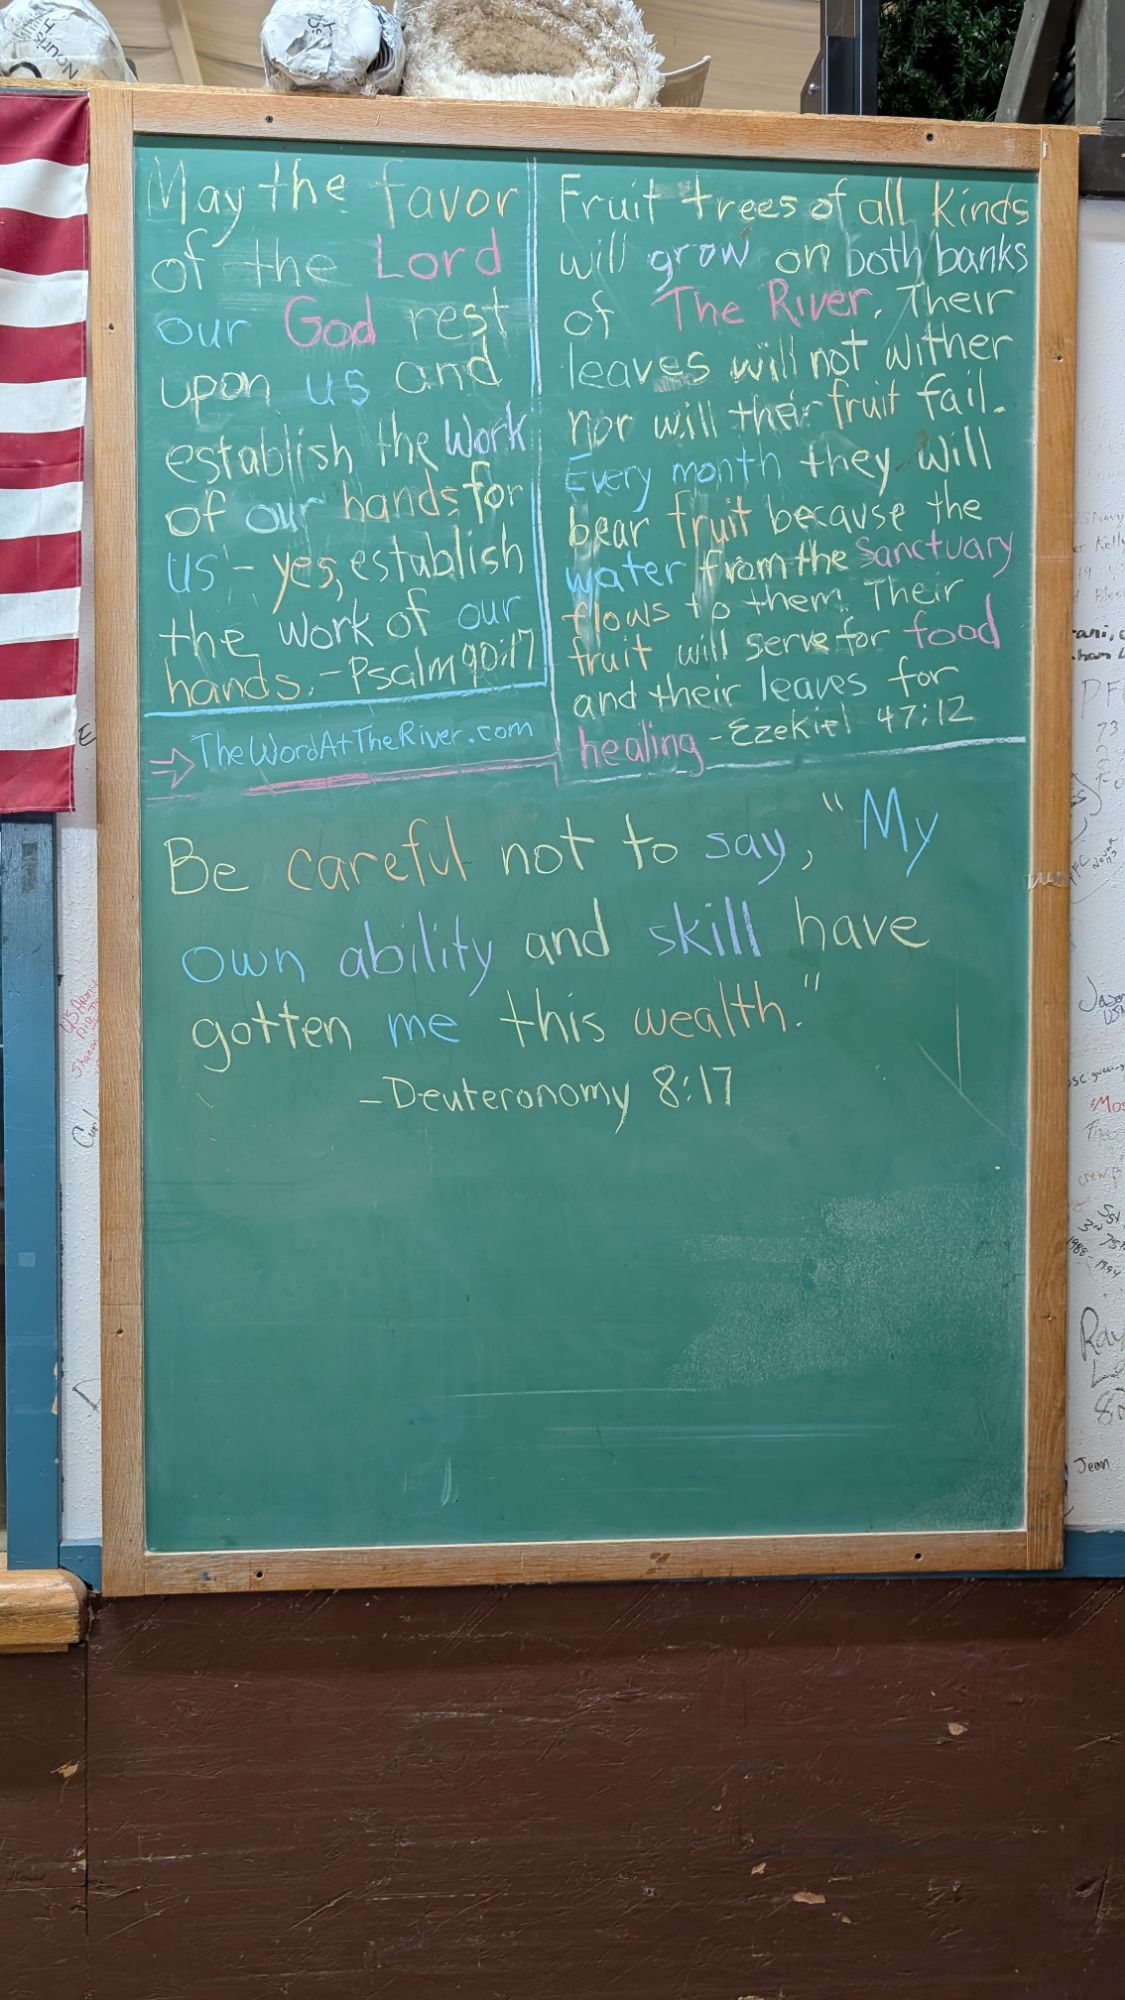 May the favor
of the Lord
our God rest
upon us and
establish the Work
of our hands for
us - yes, establish
the work of our
hands. - Psalm 90:17
TheWordAtTheRiver.com
Fruit trees of all kinds
will grow on both banks
of The River. Their
leaves will not wither
nor will their fruit fail.
Every month they will
bear fruit because the
water from the Sanctuary
flows to them. Their
fruit will serve for food
and their leaves for
healing - Ezekiel 47:12
Be careful not to say, "My
own ability and skill have
gotten me this wealth."
- Deuteronomy 8:17
Jean